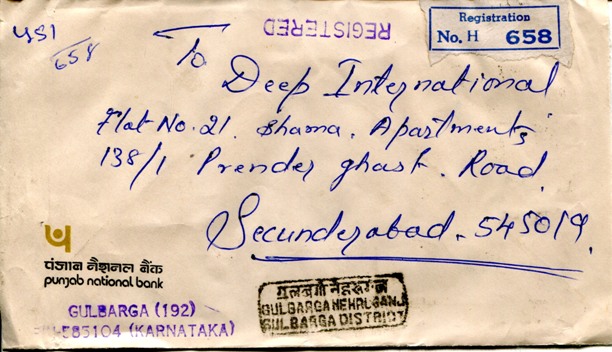 451
658
REGISTERED
Registration
No. H 658
To
Deep International
Flat No. 21. Shama. Apartments
138/1 Prender ghast. Road
Secunderabad. 545019.
पंजाब नैशनल बैंक
punjab national bank
GULBARGA (192)
585104 (KARNATAKA)
GULBARGA NEHRU GANJ
GULBARGA DISTRICT